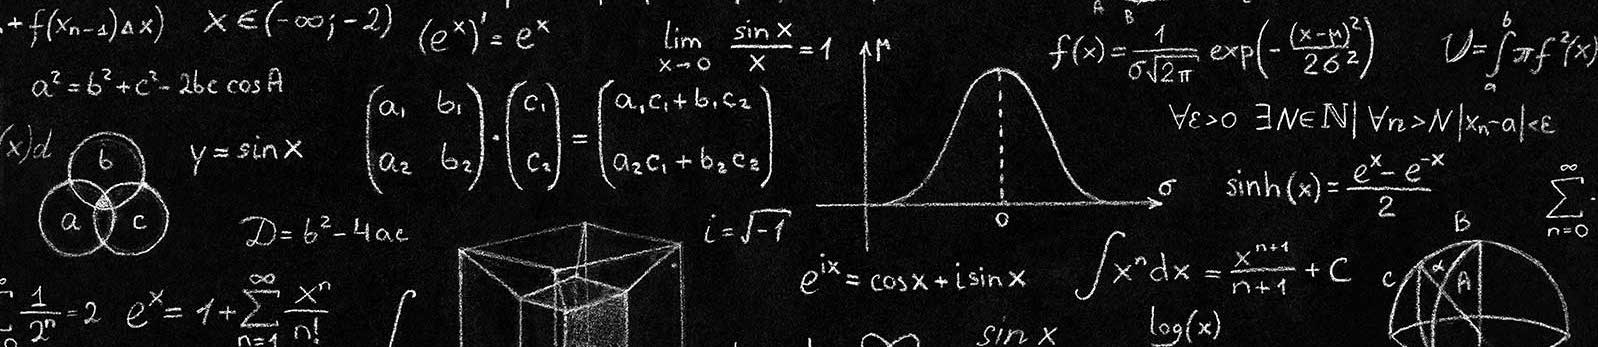 + f(xₙ₋₁)Δx)
x ∈ (-∞; -2)
(eˣ)' = eˣ
lim x→0 sin x / x = 1
A
B
f(x) = 1/(σ√2π) exp(-(x-μ)²/2σ²)
V = ∫ₐᵇ πf²(x)
a² = b² + c² - 2bc cos A
(a₁ b₁
a₂ b₂) · (c₁
c₂) = (a₁c₁ + b₁c₂
a₂c₁ + b₂c₂)
μ
σ
0
∀ε>0 ∃N∈ℕ| ∀n>N |xₙ-a|<ε
(x)d
b
a
c
y = sin x
sinh(x) = (eˣ - e⁻ˣ)/2
∞
Σ
n=0
D = b² - 4ac
i = √-1
eⁱˣ = cos x + i sin x
∫xⁿdx = xⁿ⁺¹/(n+1) + C
B
C
α
A
1/2ⁿ = 2
eˣ = 1 + Σ xⁿ/n!
∞
n=1
∫
sin x
log(x)